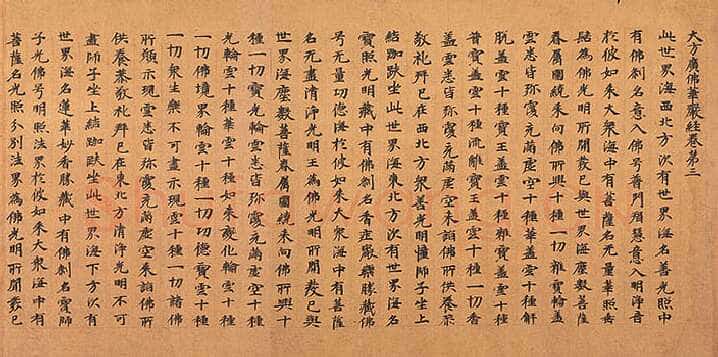 大方廣佛華嚴經卷第三
此世界海西北方次有世界海名善光照中
有佛刹名意入佛号普門智慧意入明淨音
於彼如来大衆海中有菩薩名无量華照岳
髻為佛光明所開發已與世界海塵數菩薩
眷屬圍繞来向佛所興十種一切雜寶輪蓋
雲悉皆弥覆充滿虚空十種華蓋雲十種解
脫蓋雲十種寶王蓋雲十種雜寶蓋雲十種
普寶蓋雲十種流離寶王蓋雲十種一切香
蓋雲悉皆弥覆充滿虚空来詣佛所供養恭
敬礼拜已在西北方衆善光明憧師子坐上
結跏趺坐此世界海東北方次有世界海名
寶照光明藏中有佛刹名香莊嚴樂勝藏佛
号无量功德海於彼如来大衆海中有菩薩
名无盡清淨光明王為佛光明所開發已與
世界海塵數菩薩眷屬圍繞来向佛所興十
種一切寶光輪雲悉皆弥覆充滿虚空十種
光輪雲十種華雲十種如来變化輪雲十種
一切佛境界輪雲十種一切功德寶雲十種
一切衆生樂不可盡示現雲十種一切諸佛
所願示現雲悉皆弥覆充滿虚空来詣佛所
供養恭敬礼拜已在東北方清淨光明不可
盡師子坐上結跏趺坐此世界海下方次有
世界海名蓮華妙香勝藏中有佛刹名寶師
子光佛号明照法界於彼如来大衆海中有
菩薩名光照分別法界為佛光明所開發已